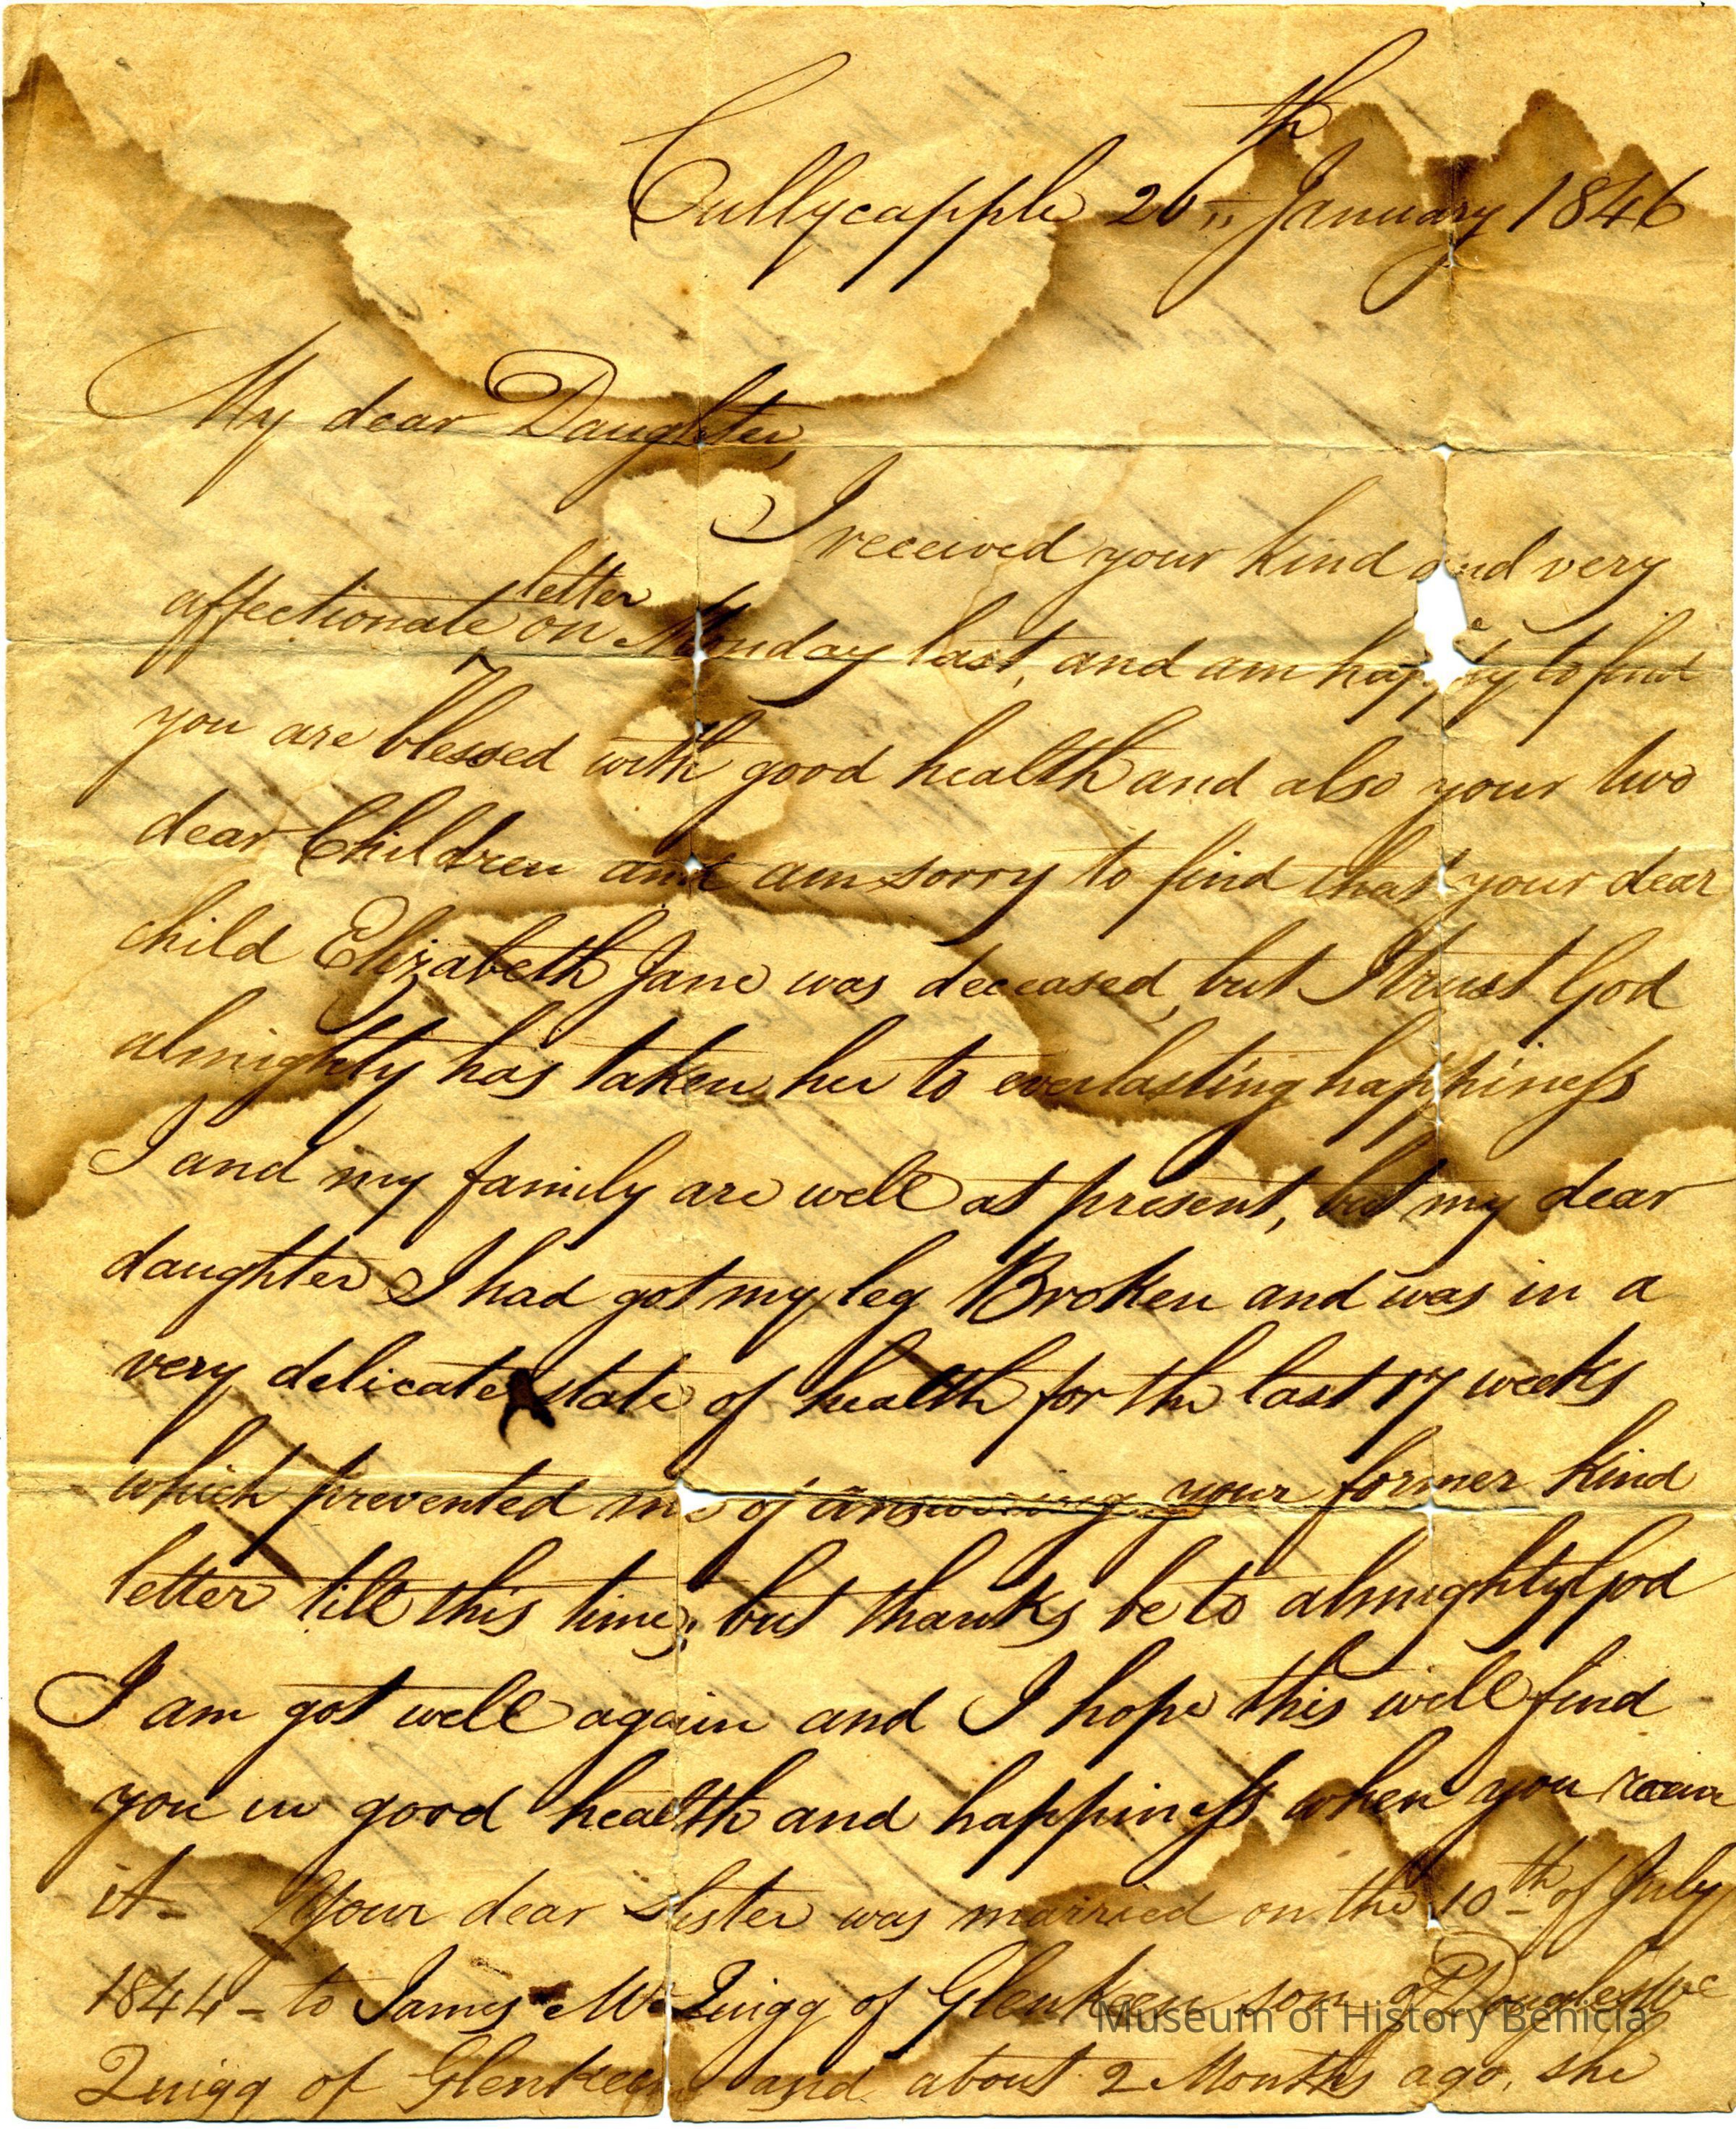 Cullycapple 26th January 1846
My dear Daughter,
I received your kind and very
affectionate letter on Monday last, and am happy to find
you are blessed with good health and also your two
dear Children and am sorry to find that your dear
child Elizabeth Jane was deceased, but I trust God
almighty has taken her to everlasting happiness
I and my family are well at present, but my dear
daughter I had got my leg Broken and was in a
very delicate state of health for the last 17 weeks
which prevented me of answering your former kind
letter till this time; but thanks be to almighty God
I am got well again and I hope this will find
you in good health and happiness when you
it - Your dear sister was married on the 10th of July
1844 - to James Mc Quigg of Glenkeen son of Mc
Quigg of Glenkeen and about 2 Months ago, she
Museum of History Benicia